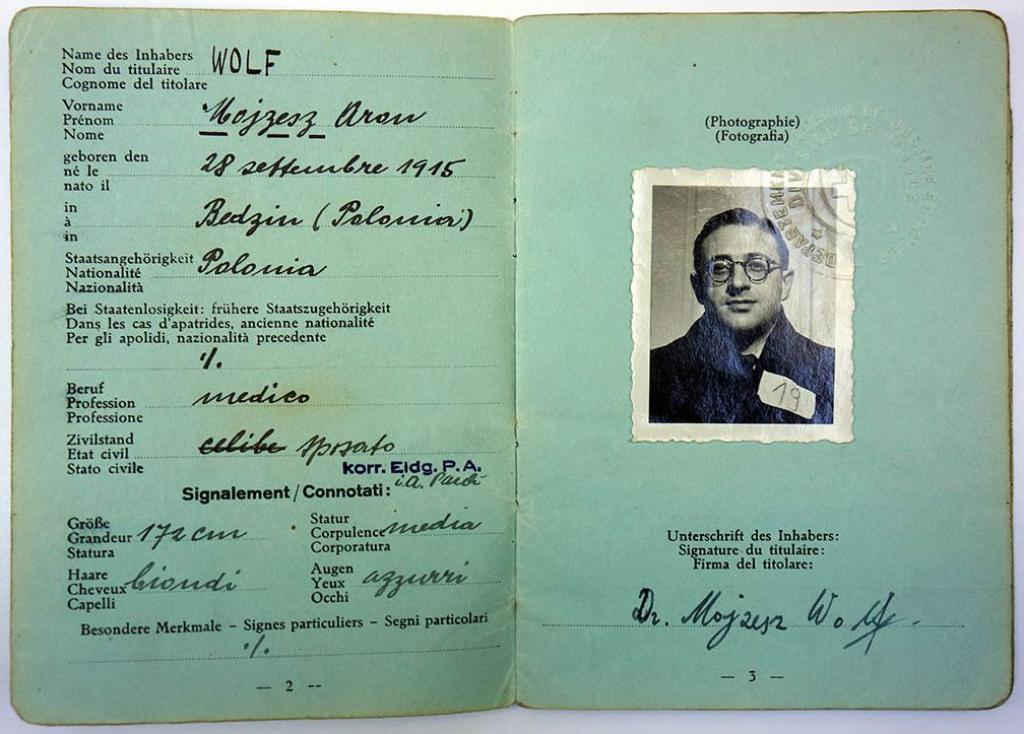 Name des Inhabers
Nom du titulaire WOLF
Cognome del titolare
Vorname
Prénom Mojzesz Aron
Nome
geboren den
né le 28 settembre 1915
nato il
in
à Bedzin (Polonia)
in
Staatsangehörigkeit Polonia
Nationalité
Nazionalità
Bei Staatenlosigkeit: frühere Staatszugehörigkeit
Dans les cas d'apatrides, ancienne nationalité
Per gli apolidi, nazionalità precedente
·/.
Beruf
Profession medico
Professione
Zivilstand
Etat civil celibe sposato
Stato civile korr. Eidg. P. A.
Signalement / Connotati: i.A.
Größe
Grandeur 172 cm
Statura
Statur
Corpulence media
Corporatura
Haare
Cheveux biondi
Capelli
Augen
Yeux azzurri
Occhi
Besondere Merkmale – Signes particuliers – Segni particolari
·/.
— 2 --
(Photographie)
(Fotografia)
19
Unterschrift des Inhabers:
Signature du titulaire:
Firma del titolare:
Dr. Mojzesz Wolf
— 3 —